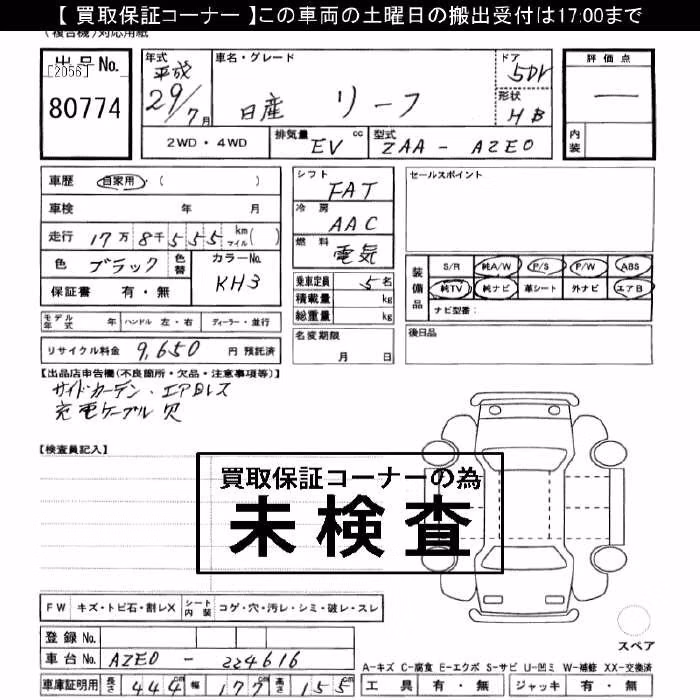 【 買取保証コーナー 】この車両の土曜日の搬出受付は17:00まで
(複合機)対応用紙
出品No.
[2056]
80774
年式
平成
29/7月
車名・グレード
日産 リーフ
ドア
5Dr
形状
HB
2WD・4WD
排気量
EV cc
型式
ZAA-AZE0
評価点
内装
車歴 自家用・( )
車検 年 月
走行 17万8千555km マイル( )
色 ブラック 色替
カラーNo.
KH3
保証書 有・無
モデル年式 年 ハンドル 左・右 ディーラー・並行
リサイクル料金 9,650 円 預託済
シフト
FAT
冷房
AAC
燃料
電気
乗車定員 5名
積載量 kg
総重量 kg
名変期限
月 日
セールスポイント
装備品
S/R 純A/W P/S P/W ABS
純TV 純ナビ 革シート 外ナビ エアB
ナビ型番:
後日品
【出品店申告欄(不良箇所・欠品・注意事項等)】
サイドカーテン・エアロレス
充電ケーブル欠
【検査員記入】
買取保証コーナーの為
未検査
FW キズ・トビ石・割レX シート内装 コゲ・穴・汚レ・シミ・破レ・スレ
登録No.
車台No. AZE0-224616
車庫証明用 長さ 444cm 幅 177cm 高さ 155cm
スペア
A-キズ C-腐食 E-エクボ S-サビ U-凹ミ W-補修 XX-交換済
工具 有・無 ジャッキ 有・無